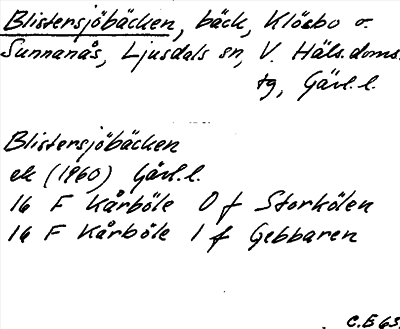 Blistersjöbäcken, bäck, Klöebo o.
Sunnanås, Ljusdals sn, V. Häls. doms.
tg, Gävl. l.
Blistersjöbäcken
ek (1960) Gävl. l.
16 F Kårböle 0 f Storkölen
16 F Kårböle 1 f Gebbaren
C.E 63.